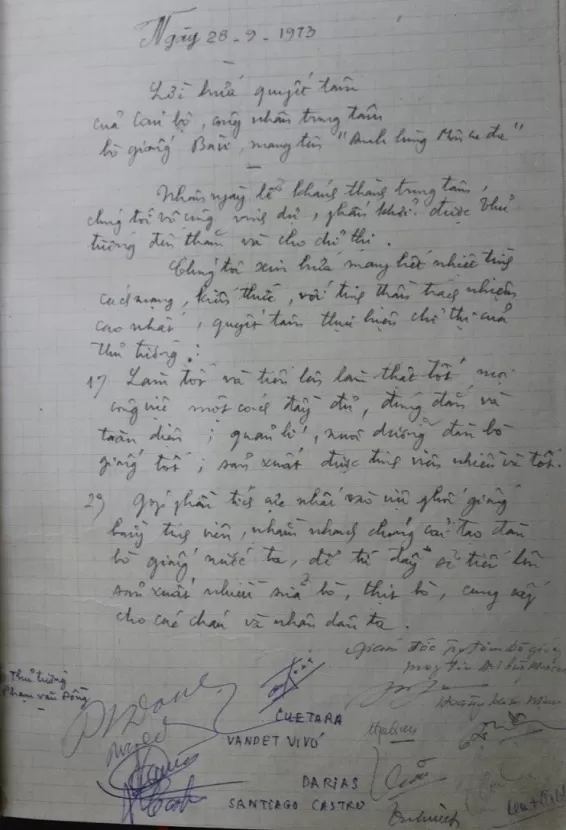 Ngày 28-9-1973
Lời hứa quyết tâm
của cán bộ, công nhân trung tâm
bò giống mang tên "Anh hùng Môncađa"
Nhân ngày lễ khánh thành trung tâm,
chúng tôi vô cùng vinh dự, phấn khởi được Thủ
tướng đến thăm và cho chỉ thị.
Chúng tôi xin hứa mang hết nhiệt tình
cách mạng, kiến thức, với tinh thần trách nhiệm
cao nhất, quyết tâm thực hiện chỉ thị của
Thủ tướng:
1) Làm tốt và tiến lên làm thật tốt mọi
công việc một cách đầy đủ, đúng đắn và
toàn diện; quản lí, nuôi dưỡng đàn bò
giống tốt; sản xuất được tinh viên nhiều và tốt.
2) Góp phần tích cực nhất vào việc phối giống
bằng tinh viên, nhằm nhanh chóng cải tạo đàn
bò giống nước ta, để từ đấy sẽ tiến lên
sản xuất nhiều sữa bò, thịt bò, cung cấp
cho các cháu và nhân dân ta.
Giám đốc
Thủ tướng
Phạm Văn Đồng
CUETARA
VANDET VIVÓ
DARIAS
SANTIAGO CASTRO